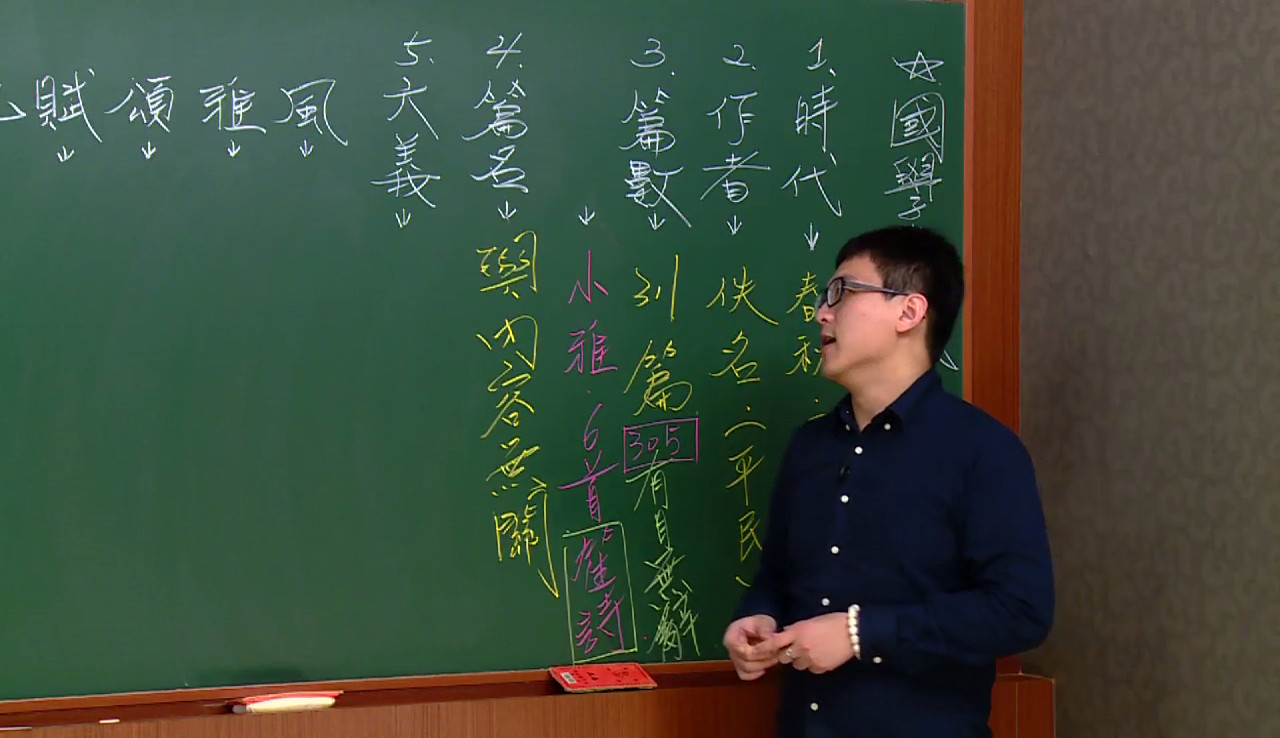 ☆國學
1.時代
春秋
2.作者
佚名.(平民)
3.篇數
311篇
305
有目無辭
小雅.6首
笙詩
4.篇名
與內容無關
5.六義
風
雅
頌
賦